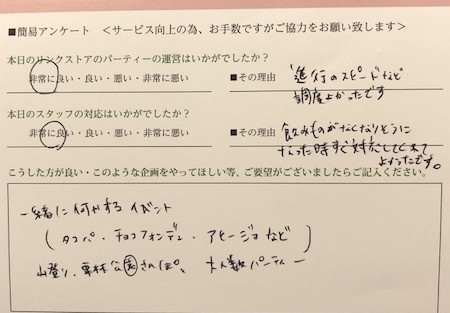 ■簡易アンケート ＜サービス向上の為、お手数ですがご協力をお願い致します＞
本日のリンクストアのパーティーの運営はいかがでしたか？
非常に良い・良い・悪い・非常に悪い ■その理由 進行のスピードなど
調度よかったです
本日のスタッフの対応はいかがでしたか？
非常に良い・良い・悪い・非常に悪い ■その理由 飲みものがなくなりそうに
なった時すぐ対応してくれて
よかったです。
こうした方が良い・このような企画をやってほしい等、ご要望がございましたらご記入ください。
一緒に何かするイベント
(タコパ・チョコフォンデュ・アヒージョなど)
山登り、栗林公園さんぽ、大人数パーティー